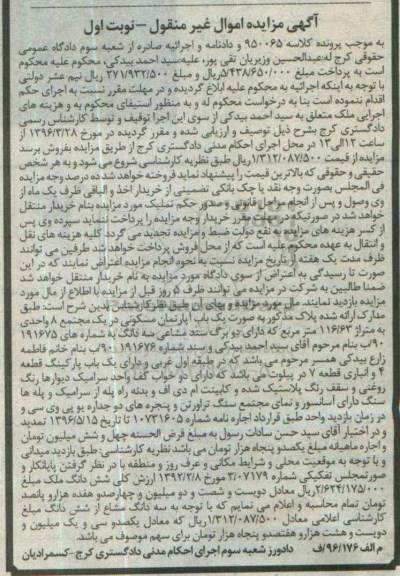 آگهی مزایده اموال غیر منقول – نوبت اول
به موجب پرونده کلاسه ۹۵۰۰۶۵ و دادنامه و اجرائیه صادره از شعبه سوم دادگاه عمومی
حقوقی کرج له عبدالحسین وزیریان تقی پور، علیه سید احمد بیدکی، محکوم علیه محکوم
است به پرداخت مبلغ ۵/۴۳۸/۶۵۰/۰۰۰ ریال و مبلغ ۲۷۱/۹۳۲/۵۰۰ ریال نیم عشر دولتی
با توجه به اینکه اجرائیه به محکوم علیه ابلاغ گردیده و در مهلت مقرر نسبت به اجرای حکم
اقدام ننموده است بنا به درخواست محکوم له و به منظور استیفای محکوم به و هزینه های
اجرایی ملک متعلق به سید احمد بیدکی از سوی این اجرا توقیف و توسط کارشناس رسمی
دادگستری کرج بشرح ذیل توصیف و ارزیابی شده و مقرر گردیده در مورخ ۱۳۹۶/۳/۲۸ از
ساعت ۱۲ الی ۱۳ در محل اجرای احکام مدنی دادگستری کرج از طریق مزایده بفروش برسد
مزایده از قیمت ۱/۳۱۲/۰۸۷/۵۰۰ ریال طبق نظریه کارشناسی شروع می شود و به هر شخص
حقیقی و حقوقی که بالاترین قیمت را پیشنهاد نماید فروخته خواهد شد ده درصد وجه مزایده
فی المجلس بصورت وجه نقد یا چک بانکی تضمینی از خریدار اخذ و الباقی ظرف یک ماه از
وی وصول و پس از انجام مراحل قانونی و صدور حکم تملیک مورد مزایده بنام خریدار منتقل
خواهد شد در صورتیکه در موعد مقرر خریدار وجه مزایده را پرداخت ننماید سپرده وی پس
از کسر هزینه های مزایده به نفع دولت ضبط و مزایده تجدید می گردد کلیه هزینه های نقل
و انتقال به عهده محکوم علیه است که از محل فروش پرداخت خواهد شد طرفین می توانند
ظرف مدت یک هفته از تاریخ مزایده نسبت به نحوه انجام مزایده اعتراض نمایند که در این
صورت تا رسیدگی به اعتراض از سوی دادگاه مورد مزایده به نام خریدار منتقل خواهد شد
ضمنا طالبین به شرکت در مزایده می توانند ظرف ۵ روز قبل از مزایده با اطلاع از مال مورد
مزایده بازدید نمایند. مال مورد مزایده و بهای آن طبق نظر کارشناس بدین شرح است: طبق
مدارک ارائه شده پلاک مذکور به صورت یک باب آپارتمان مسکونی در یک مجتمع ۸ واحدی
به متراژ ۱۱۶/۶۳ متر مربع که دارای دو برگ سند مشاعی سه دانگ به شماره های ۱۹۱۶۷۵
۹۰/ب بنام مرحوم آقای سید احمد بیدکی و سند شماره ۱۹۱۶۷۶ ۹۰/ب بنام خانم فاطمه
زارع بیدکی همسر مرحوم می باشد که در طبقه اول غربی و دارای یک باب پارکینگ قطعه
۴ و انباری قطعه ۷ در پیلوت می باشد که دارای دو خواب کف واحد سرامیک دیوارها رنگ
روغنی و سقف رنگ پلاستیک شده و کابینت ام دی اف و بدنه راه پله از سرامیک و پله ها
سنگ دارای آسانسور و نمای مجتمع سنگ تراورتن و پنجره های دو جداره یو پی وی سی و
در زمان بازدید واحد طبق قرارداد اجاره نامه شماره ۱۰۷۳۱۶۰۵ تا تاریخ ۱۳۹۶/۵/۱۵ تمدید
و در اختیار آقای سید حسن سادات رسول به مبلغ قرض الحسنه چهل و شش میلیون تومان
و اجاره ماهیانه مبلغ یکصدو پنجاه هزار تومان می باشد نظریه کارشناسی: طبق بازدید میدانی
و با توجه به موقعیت محلی و شرایط مکانی و عرف روز و منطقه با در نظر گرفتن پایانکار و
صورتمجلس تفکیکی شماره ۳/۰۷۱۷۹ مورخ ۱۳۹۲/۲/۸ ارزش کلی شش دانگ ملک مبلغ
۲/۶۲۴/۱۷۵/۰۰۰ ریال معادل دویست و شصت و دو میلیون و چهارصدو هفده هزارو پانصد
تومان تمام محاسبه و اعلام می نمایم که با توجه به سه دانگ مشاع از شش دانگ مبلغ
کارشناسی اعلامی معادل ۱/۳۱۲/۰۸۷/۵۰۰ ریال که معادل یکصدو سی و یک میلیون و
دویست و هشت هزارو هفتصدو پنجاه هزار تومان برای سهم موصوف می باشد.
م الف ۹۶/۱۷۶/ف دادورز شعبه سوم اجرای احکام مدنی دادگستری کرج-کسمرادیان